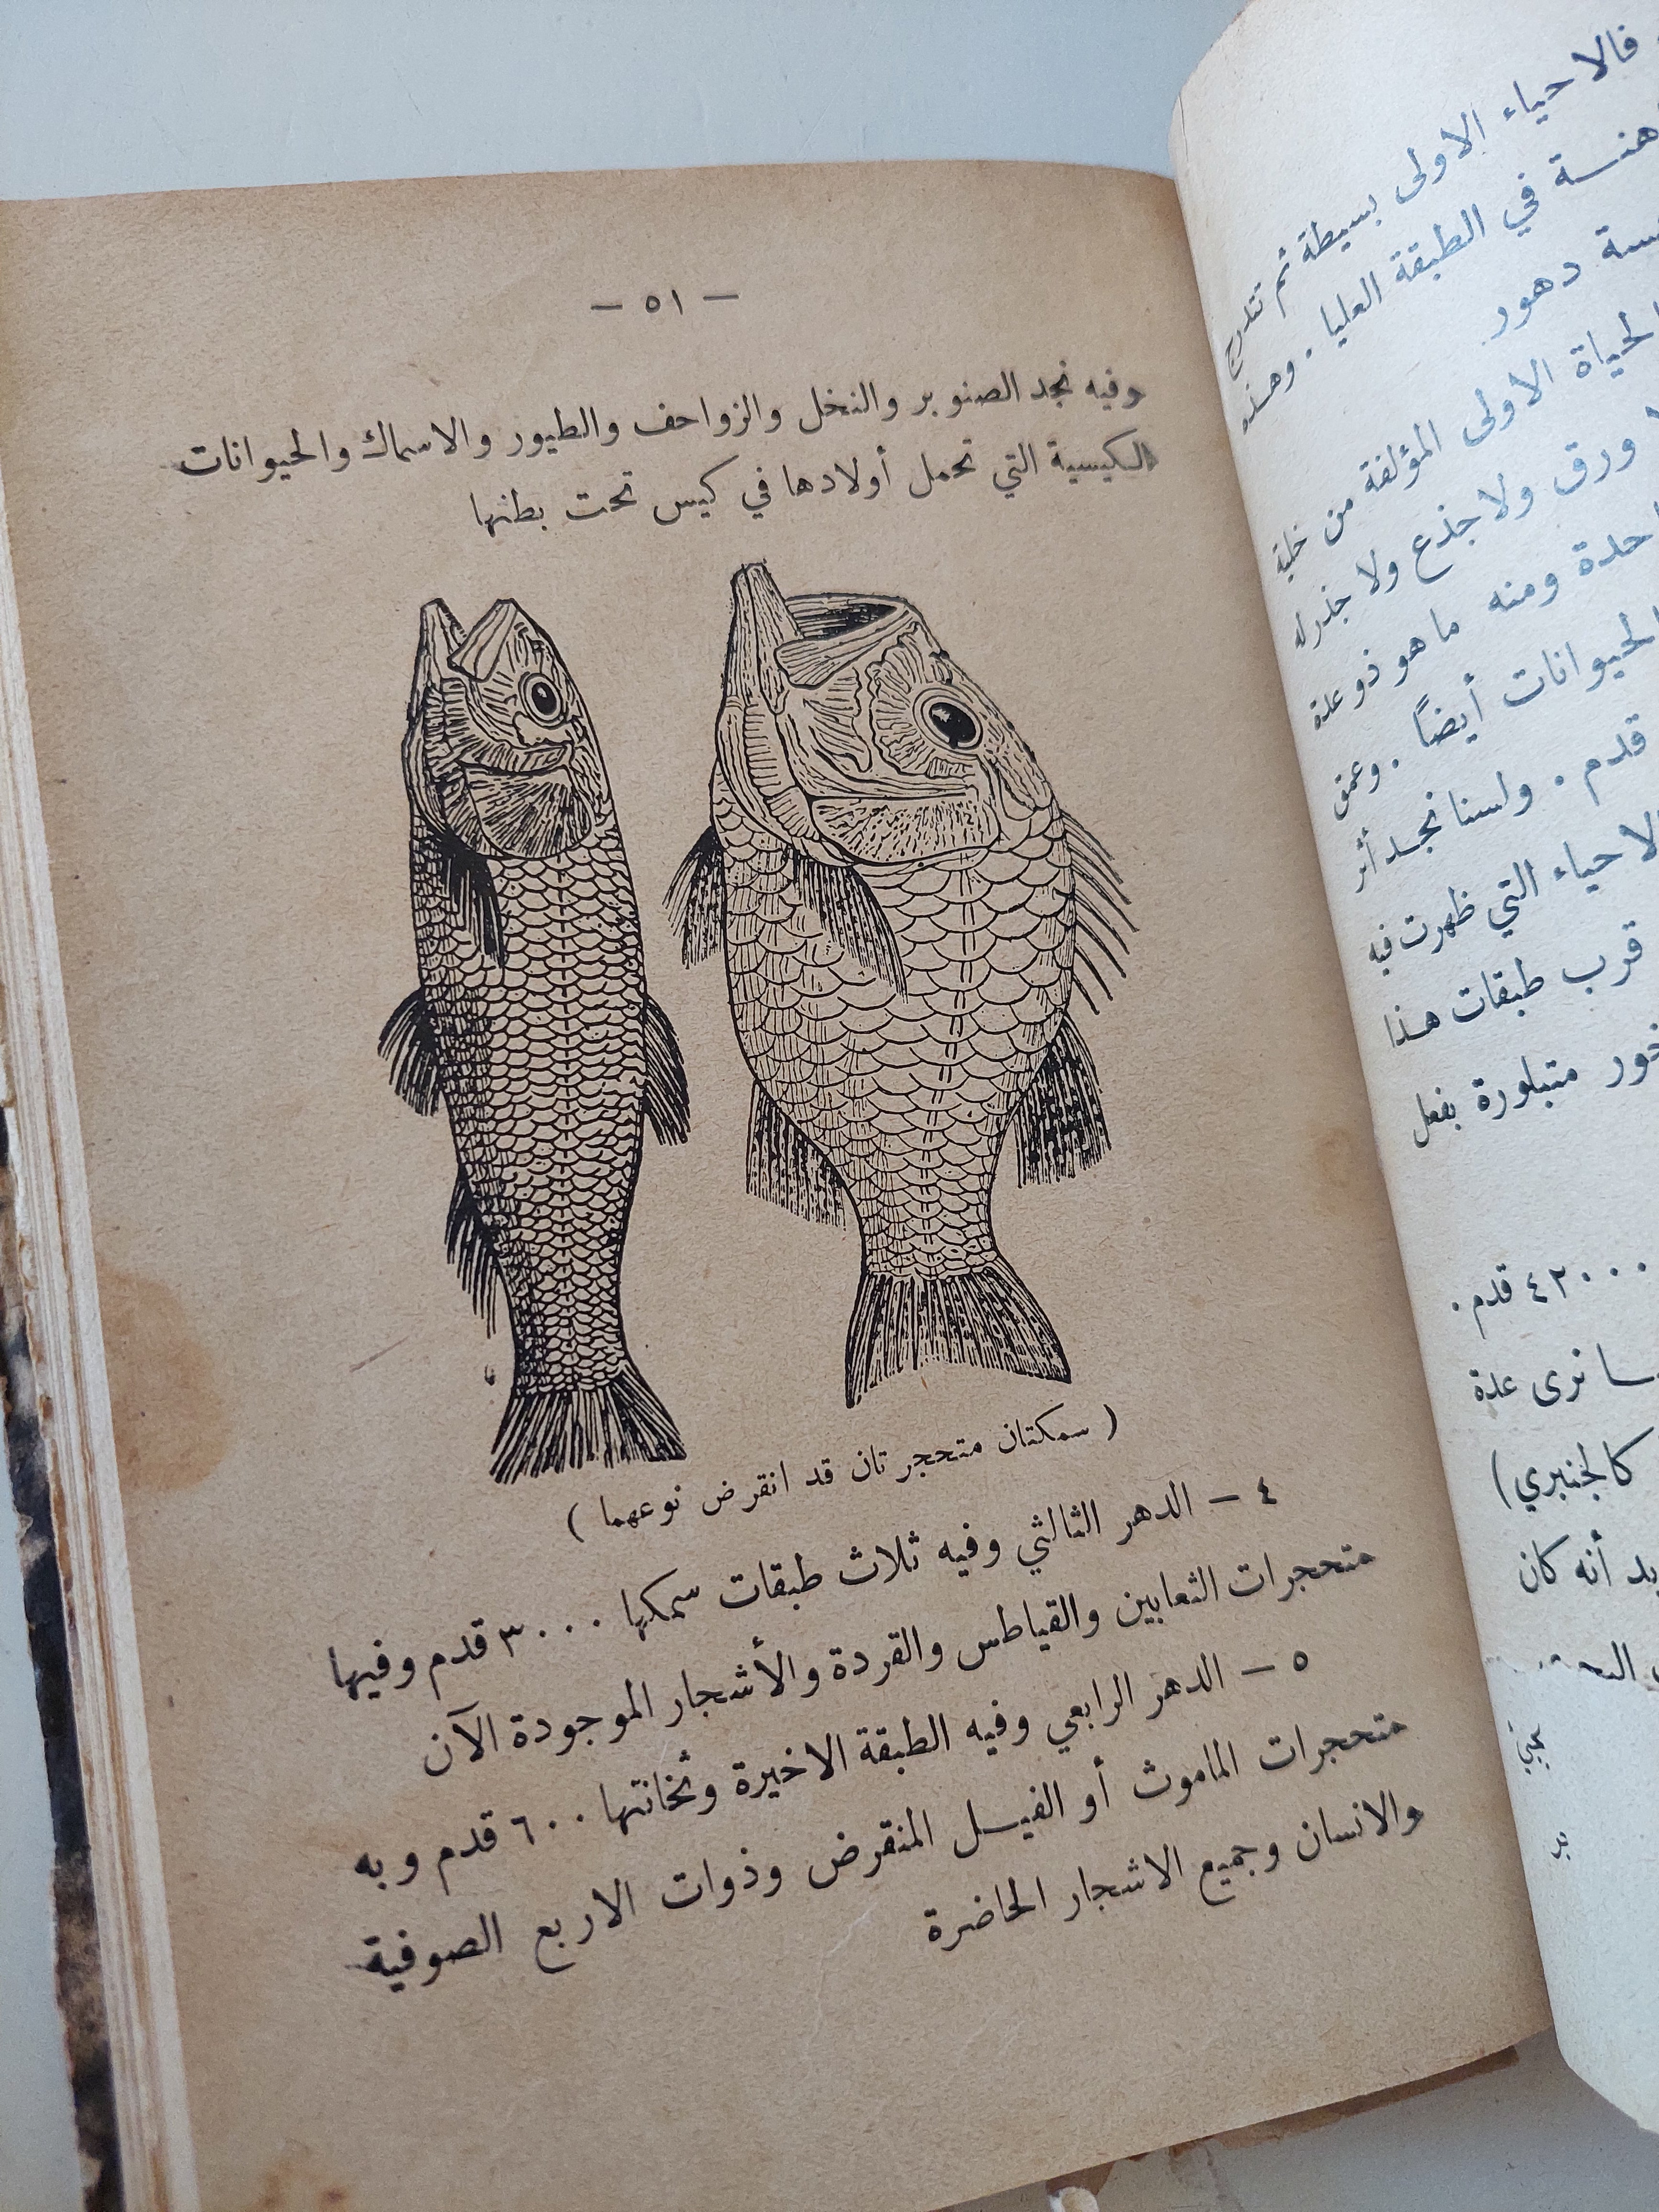 فالاحياء الاولى بسيطة ثم تتدرج
في الطبقة العليا . وهذه
دهور
الحياة الاولى المؤلفة من خلية
ورق ولا جذع ولا جذر له
ومنه ما هو ذو عدة
الحيوانات أيضاً . وعمق
قدم . ولسنا نجد أثر
الاحياء التي ظهرت فيه
قرب طبقات هذا
متبلورة بفعل
٤٢٠٠٠ قدم .
نرى عدة
كالجنبري )
أنه كان
— ٥١ —
وفيه نجد الصنوبر والنخل والزواحف والطيور والاسماك والحيوانات
الكيسية التي تحمل أولادها في كيس تحت بطنها
( سمكتان متحجرتان قد انقرض نوعهما )
٤ — الدهر الثالثي وفيه ثلاث طبقات سمكها ٣٠٠٠ قدم وفيها
متحجرات الثعابين والقياطس والقردة والأشجار الموجودة الآن
٥ — الدهر الرابعي وفيه الطبقة الاخيرة وثخانتها ٦٠٠ قدم وبه
متحجرات الماموث أو الفيل المنقرض وذوات الاربع الصوفية
والانسان وجميع الاشجار الحاضرة